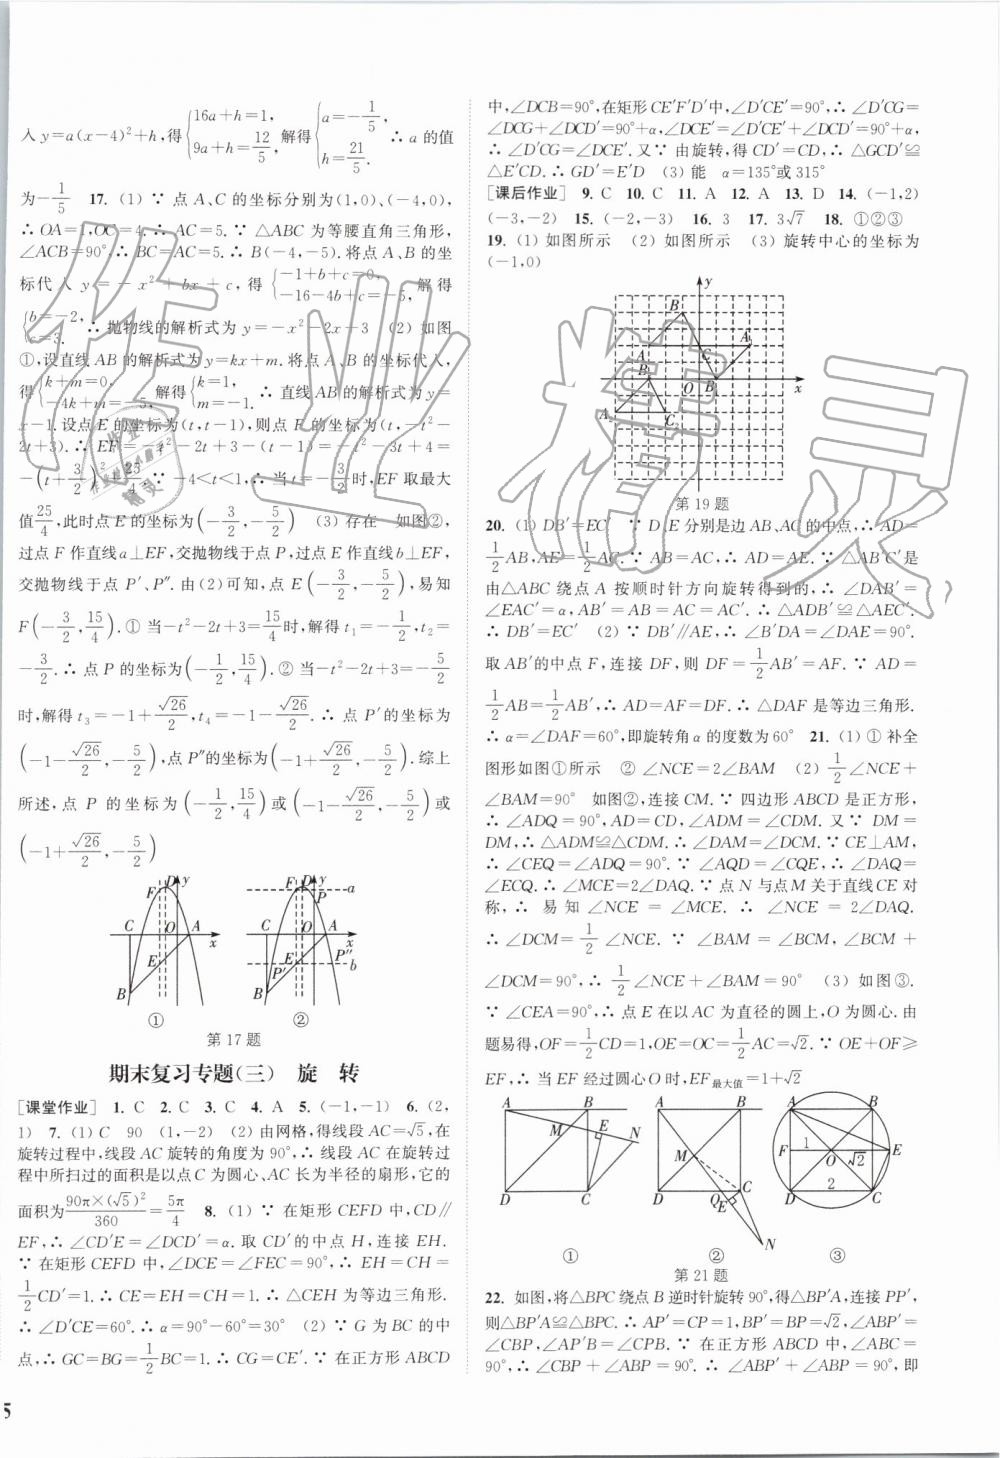 入 y=a(x-4)²+h,得{16a+h=1, 9a+h=12/5, 解得{a=-1/5, h=21/5. ∴ a 的值
为-1/5 17. (1) ∵ 点 A、C 的坐标分别为(1,0)、(-4,0),
∴ OA=1,OC=4. ∴ AC=5. ∵ △ABC 为等腰直角三角形,
∠ACB=90°,∴ BC=AC=5. ∴ B(-4,-5). 将点 A、B 的坐
标代入 y=-x²+bx+c,得{-1+b+c=0, -16-4b+c=-5, 解得
{b=-2, c=3. ∴ 抛物线的解析式为 y=-x²-2x+3 (2) 如图
①,设直线 AB 的解析式为 y=kx+m. 将点 A、B 的坐标代入,
得{k+m=0, -4k+m=-5, 解得{k=1, m=-1. ∴ 直线 AB 的解析式为 y=
x-1. 设点 E 的坐标为(t,t-1),则点 F 的坐标为(t,-t²-
2t+3). ∴ EF=-t²-2t+3-(t-1)=-t²-3t+4=
-(t+3/2)²+25/4. ∵ -4<t<1,∴ 当 t=-3/2时,EF 取最大
值25/4,此时点 E 的坐标为(-3/2,-5/2) (3) 存在 如图②,
过点 F 作直线a⊥EF,交抛物线于点 P,过点 E 作直线b⊥EF,
交抛物线于点 P′、P″. 由(2)可知,点 E(-3/2,-5/2),易知
F(-3/2,15/4). ① 当-t²-2t+3=15/4时,解得 t₁=-1/2,t₂=
-3/2. ∴ 点 P 的坐标为(-1/2,15/4). ② 当-t²-2t+3=-5/2
时,解得 t₃=-1+√26/2,t₄=-1-√26/2. ∴ 点 P′的坐标为
(-1-√26/2,-5/2),点 P″的坐标为(-1+√26/2,-5/2). 综上
所述,点 P 的坐标为(-1/2,15/4)或(-1-√26/2,-5/2)或
(-1+√26/2,-5/2)
F D y C O A x E B ①
F D y P a C O A x E P′ P″ b B ②
第 17 题
期末复习专题(三) 旋 转
[课堂作业] 1. C 2. C 3. C 4. A 5. (-1,-1) 6. (2,
1) 7. (1) C 90 (1,-2) (2) 由网格,得线段 AC=√5,在
旋转过程中,线段 AC 旋转的角度为 90°,∴ 线段 AC 在旋转过
程中所扫过的面积是以点 C 为圆心、AC 长为半径的扇形,它的
面积为90π×(√5)²/360=5π/4 8. (1) ∵ 在矩形 CEFD 中,CD∥
EF,∴ ∠CD′E=∠DCD′=α. 取 CD′的中点 H,连接 EH.
∵ 在矩形 CEFD 中,∠DCE=∠FEC=90°,∴ EH=CH=
1/2CD′=1. ∴ CE=EH=CH=1. ∴ △CEH 为等边三角形.
∴ ∠D′CE=60°. ∴ α=90°-60°=30° (2) ∵ G 为 BC 的中
点,∴ GC=BG=1/2BC=1. ∴ CG=CE′. ∵ 在正方形 ABCD
中,∠DCB=90°,在矩形 CE′F′D′中,∠D′CE′=90°,∴ ∠D′CG=
∠DCG+∠DCD′=90°+α,∠DCE′=∠D′CE′+∠DCD′=90°+α,
∴ ∠D′CG=∠DCE′. 又∵ 由旋转,得 CD′=CD,∴ △GCD′≌
△E′CD. ∴ GD′=E′D (3) 能 α=135°或 315°
[课后作业] 9. C 10. C 11. A 12. A 13. D 14. (-1,2)
(-3,-2) 15. (-2,-3) 16. 3 17. 3√7 18. ①②③
19. (1) 如图所示 (2) 如图所示 (3) 旋转中心的坐标为
(-1,0)
y B A C A B O B x A C
第 19 题
20. (1) DB′=EC′ ∵ D、E 分别是边 AB、AC 的中点,∴ AD=
1/2AB,AE=1/2AC. ∵ AB=AC,∴ AD=AE. ∵ △AB′C′是
由△ABC 绕点 A 按顺时针方向旋转得到的,∴ ∠DAB′=
∠EAC′=α,AB′=AB=AC=AC′. ∴ △ADB′≌△AEC′.
∴ DB′=EC′ (2) ∵ DB′∥AE,∴ ∠B′DA=∠DAE=90°.
取 AB′的中点 F,连接 DF,则 DF=1/2AB′=AF. ∵ AD=
1/2AB=1/2AB′,∴ AD=AF=DF. ∴ △DAF 是等边三角形.
∴ α=∠DAF=60°,即旋转角 α 的度数为 60° 21. (1) ① 补全
图形如图①所示 ② ∠NCE=2∠BAM (2) 1/2∠NCE+
∠BAM=90° 如图②,连接 CM. ∵ 四边形 ABCD 是正方形,
∴ ∠ADQ=90°,AD=CD,∠ADM=∠CDM. 又∵ DM=
DM,∴ △ADM≌△CDM. ∴ ∠DAM=∠DCM. ∵ CE⊥AM,
∴ ∠CEQ=∠ADQ=90°. ∵ ∠AQD=∠CQE,∴ ∠DAQ=
∠ECQ. ∴ ∠MCE=2∠DAQ. ∵ 点 N 与点 M 关于直线 CE 对
称,∴ 易知∠NCE=∠MCE. ∴ ∠NCE=2∠DAQ.
∴ ∠DCM=1/2∠NCE. ∵ ∠BAM=∠BCM,∠BCM+
∠DCM=90°,∴ 1/2∠NCE+∠BAM=90° (3) 如图③.
∵ ∠CEA=90°,∴ 点 E 在以 AC 为直径的圆上,O 为圆心. 由
题易得,OF=1/2CD=1,OE=OC=1/2AC=√2. ∵ OE+OF≥
EF,∴ 当 EF 经过圆心 O 时,EF最大值=1+√2
A B M E N D C ①
A B M D Q C E N ②
A B F 1 O E √2 2 D C ③
第 21 题
22. 如图,将△BPC 绕点 B 逆时针旋转 90°,得△BP′A,连接 PP′,
则△BP′A≌△BPC. ∴ AP′=CP=1,BP′=BP=√2,∠ABP′=
∠CBP,∠AP′B=∠CPB. ∵ 在正方形 ABCD 中,∠ABC=
90°,∴ ∠CBP+∠ABP=90°. ∴ ∠ABP′+∠ABP=90°,即
5
作业精灵